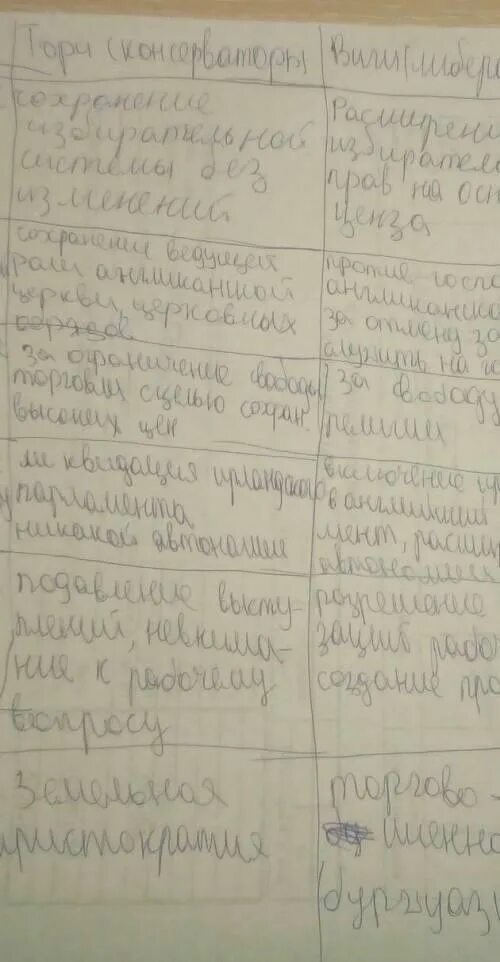 Тори (консерваторы
Виги (либера
сохранение
избирательной
системы без
изменений.
Расширени
избирател
прав на осн
ценза
сохранение ведущей
роли англиканской
церкви, церковных
обрядов
против госпо
англиканско
за отмену за
служить на го
за ограничение свободы
торговли с целью сохран.
высоких цен
за свободу
религии
ликвидация ирландского
парламента
никакой автономии
включение ир
в английский
мент, расшир
автономии
подавление высту-
плений, невнима-
ние к рабочему
вопросу
разрешение
зации рабоч
создание про
Земельная
аристократия
торгово -
именно
(буржуази